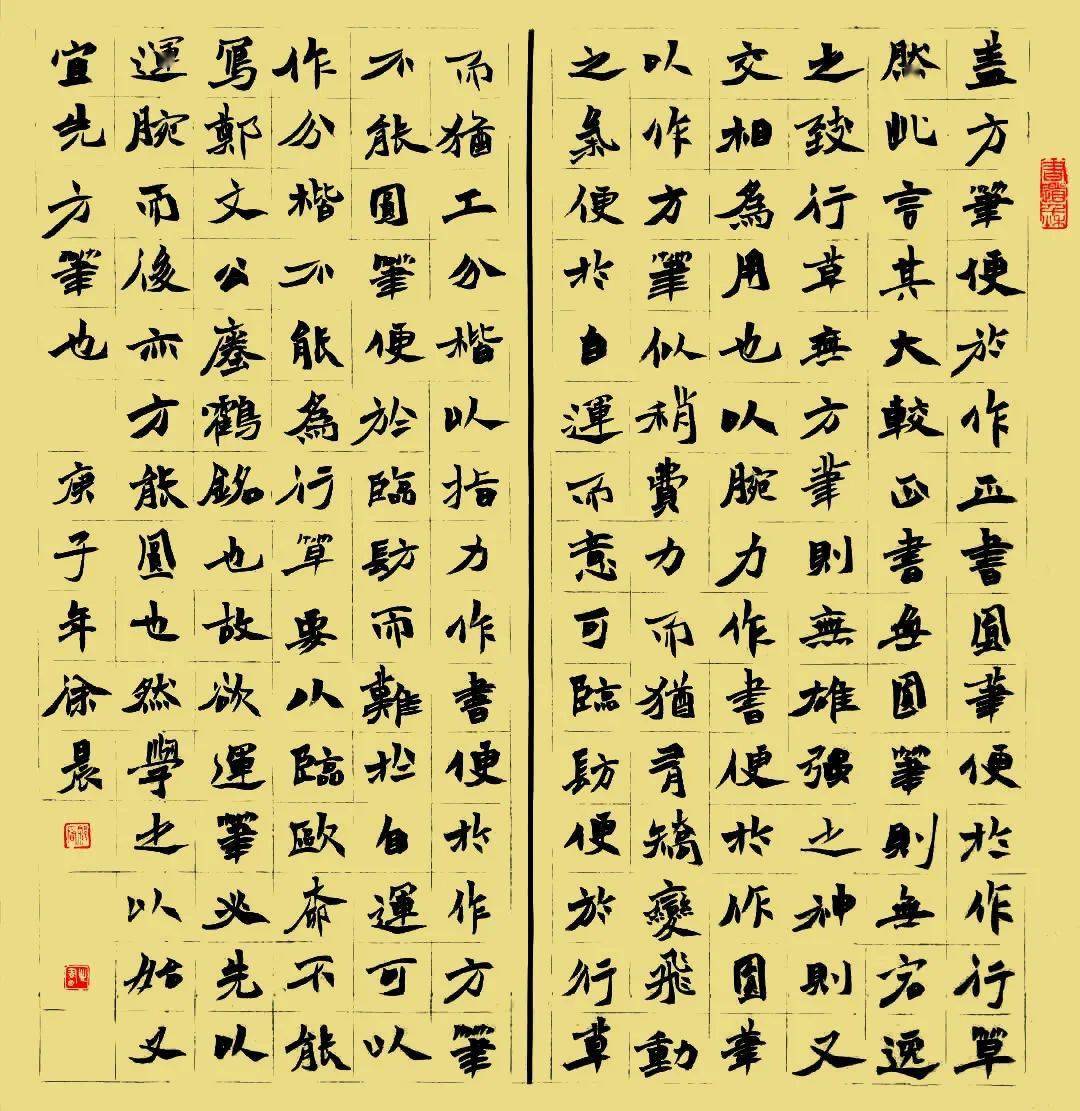 盖方筆便於作正書圓筆便於作行草
然此言其大較正書無圓筆則無宕逸
之致行草無方筆則無雄强之神則又
交相為用也以腕力作書便於作圓筆
以作方筆似稍費力而猶有矯變飛動
之氣便於自運而意可臨髣便於行草
而猶工分楷以指力作書便於作方筆
不能圓筆便於臨髣而難於自運可以
作分楷不能為行草要以臨歐柳不能
寫鄭文公瘞鶴銘也故欲運筆必先以
運腕而後亦方能圓也然學之以始又
宜先方筆也 庚子年徐晨